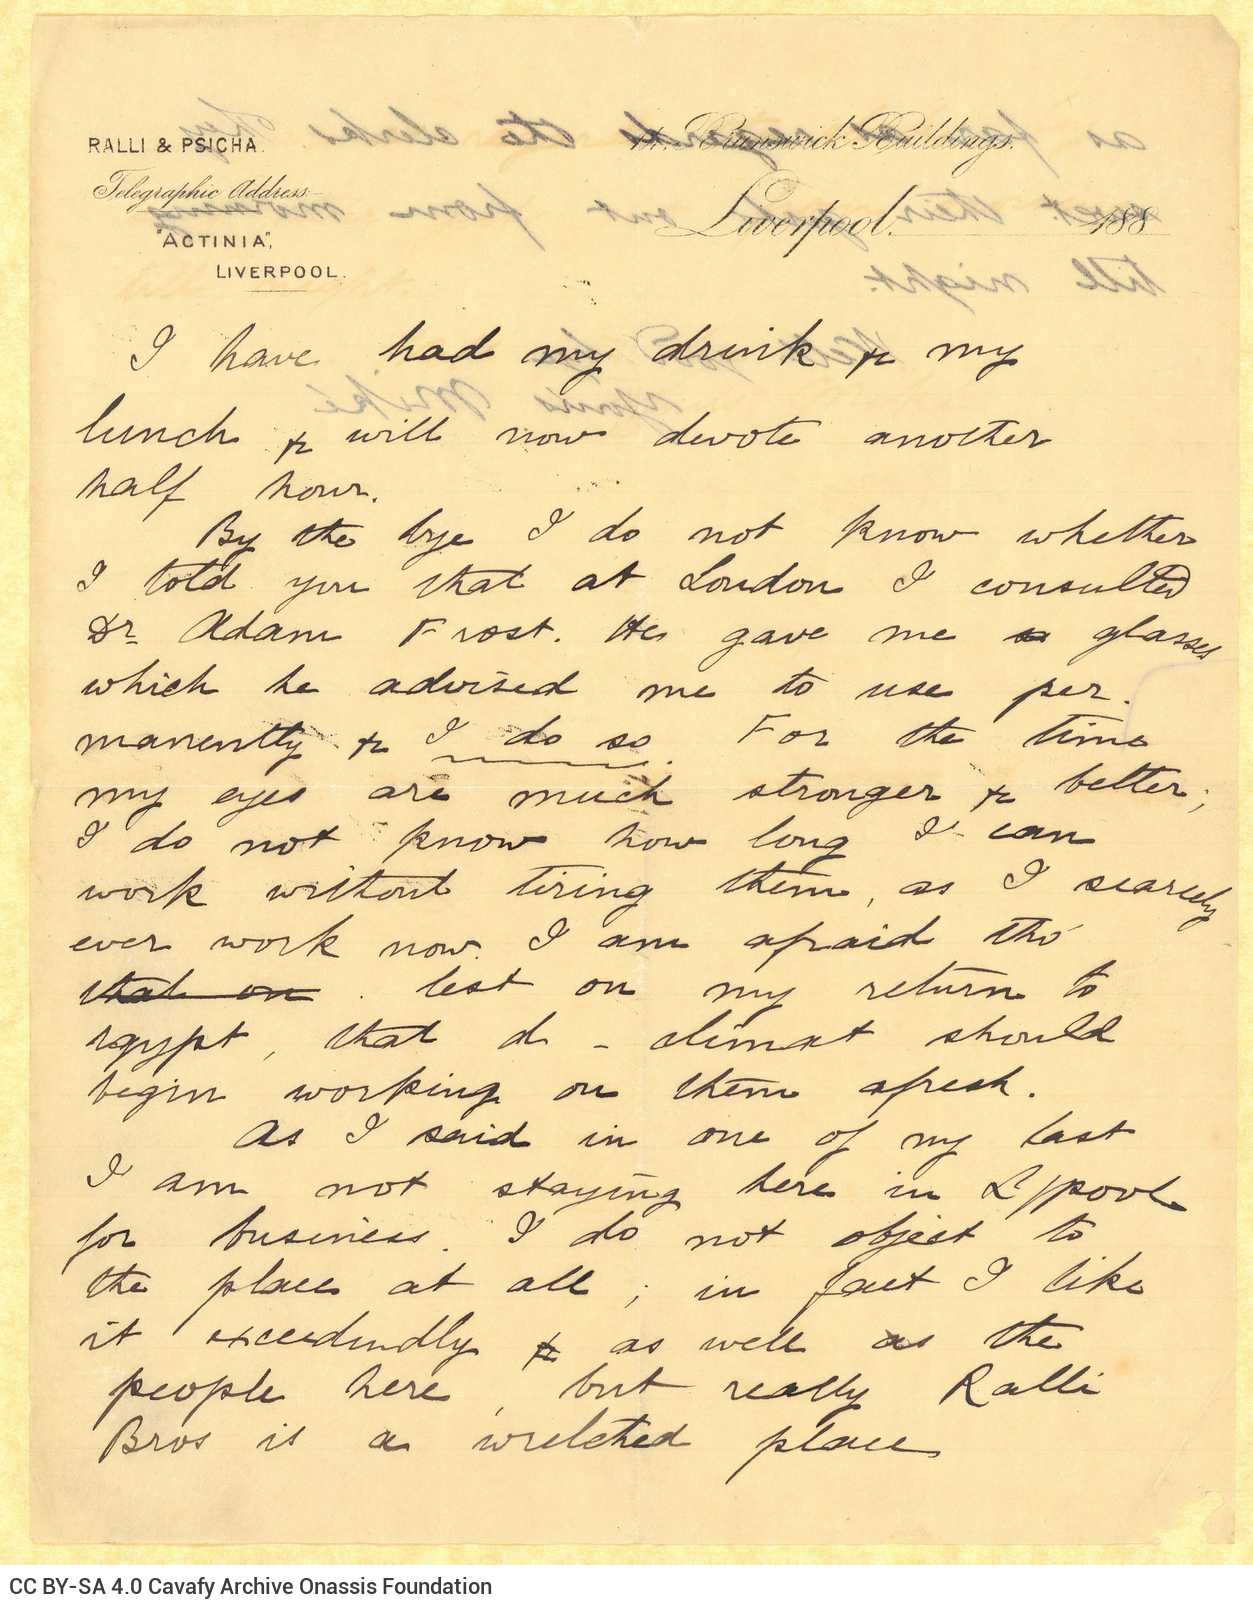 RALLI & PSICHA.
Telegraphic Address
"ACTINIA",
LIVERPOOL.
14. Brunswick Buildings.
Liverpool. 188
I have had my drink & my
lunch & will now devote another
half hour.
By the bye I do not know whether
I told you that at London I consulted
Dr. Adam Frost. He gave me glasses
which he advised me to use per-
manently & I do so. For the time
my eyes are much stronger & better;
I do not know how long I can
work without tiring them, as I scarcely
ever work now. I am afraid tho'
that on. lest on my return to
Egypt, that d - climat should
begin working on them afresh.
As I said in one of my last
I am not staying here in L'ppool
for business. I do not object to
the place at all; in fact I like
it exceedindly & as well as the
people here, but really Ralli
Bros is a wretched place
as far as regards the clerks. They
sweat their out from morning
till night.
Yours Miké
CC BY-SA 4.0 Cavafy Archive Onassis Foundation